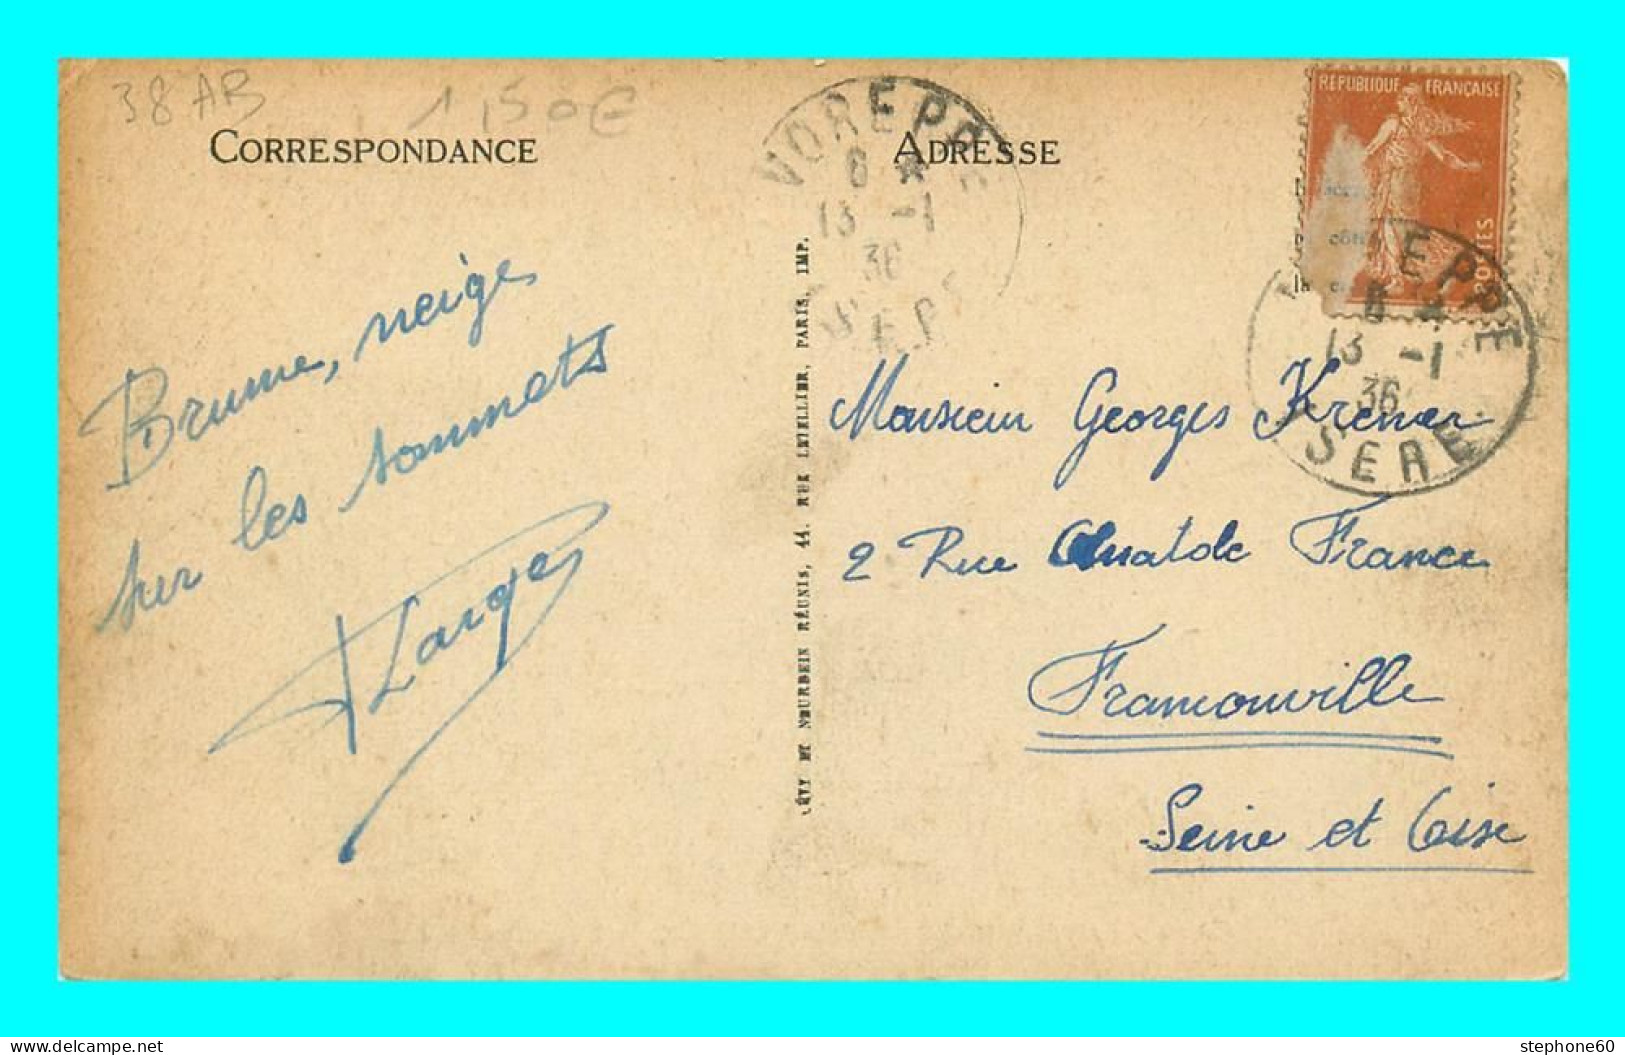 38 AB
1,50€
CORRESPONDANCE
Brume, neige
sur les sommets
ADRESSE
VOREPPE
6 *
13 -1
36
ISERE
RÉPUBLIQUE FRANÇAISE
POSTES
la
VOREPPE
6 *
13 -1
36
ISERE
LÉVY ET NEURDEIN RÉUNIS, 44, RUE LETELLIER, PARIS, IMP.
Monsieur Georges
2 Rue Anatole France
Franconville
Seine et Oise
delcampe.net
stephone60